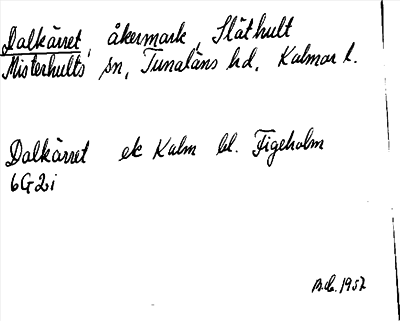 Dalkärret, åkermark, Släthult
Misterhults sn, Tunaläns hd, Kalmar l.
Dalkärret ek Kalm bl. Figeholm
6G2i
1957